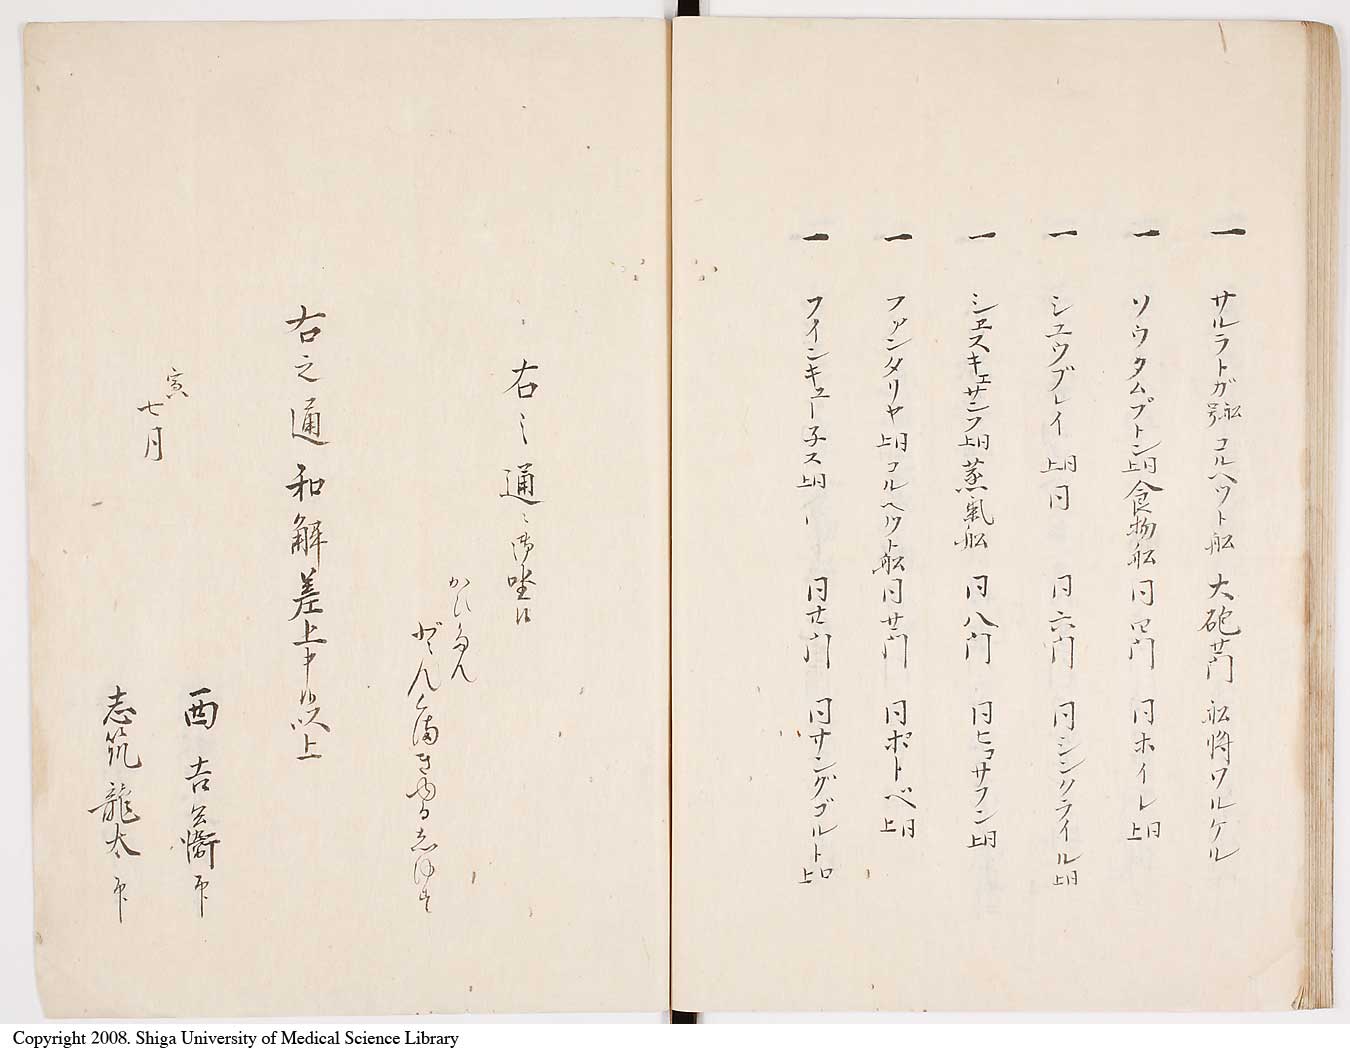 一 サルラトガ船号 コルヘット船 大砲廿門 船将ワルケル
一 ソウタムプトン同上 食物船 同四門 同ホイレ同上
一 シユウプレイ同上 同 同六門 同シンクライル同上
一 シヱスキェサンフ同上 蒸氣船 同八門 同ヒコサフン同上
一 ファンタリヤ同上 コルヘット船 同廿門 同ポートベ同上
一 フインキュー子ス同上 同廿門 同サングゴルト同上
右之通ニ御坐候
かひたん
どんくるきゆるしゆす
右之通和解差上申候以上
寅
七月
西吉兵衛 印
志筑龍太 印
Copyright 2008. Shiga University of Medical Science Library